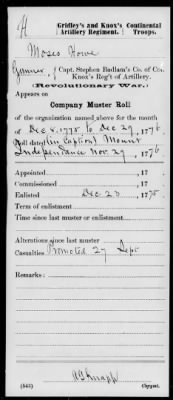 H
Gridley's and Knox's Continental
Artillery Regiment. Troops.
Moses Howe
Gunner, Capt. Stephen Badlam's Co. of Col.
Knox's Reg't of Artillery.
(Revolutionary War.)
Appears on
Company Muster Roll
of the organization named above for the month
of Dec 8, 1775, to Dec 29, 1776
Roll dated (in Caption) Mount
Independence Nov. 29, 1776
Appointed , 17
Commissioned , 17
Enlisted Dec 23 , 1775.
Term of enlistment
Time since last muster or enlistment
Alterations since last muster
Casualties Promoted 27 Sept
Remarks:
(543) Copyist.